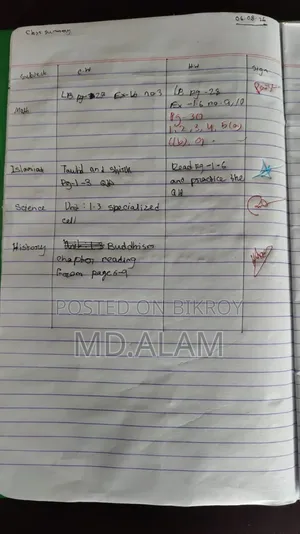 06.08.24
Class Summary
Subject C.W H.W Sign
Math LB pg-22 Ex-1b no 3 LB pg-28
Ex-1.6 no
Pg-30
1, 2, 3, 4, 5(a)
Islamiat Tauhid and shirk Read pg-1-6
pg-1-3 and practice the
Science Unit: 1.3 specialized
cell
History Buddhism
chapter reading
from page
POSTED ON BIKROY
MD.ALAM